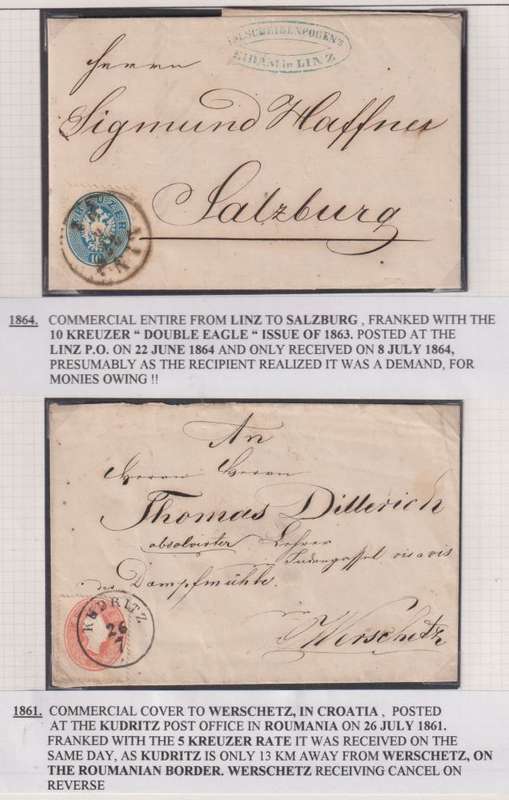 EIDAM in LINZ
Herrn
Sigmund Haffner
Salzburg
KREUZER
10
LINZ
1864. COMMERCIAL ENTIRE FROM LINZ TO SALZBURG , FRANKED WITH THE
10 KREUZER “ DOUBLE EAGLE “ ISSUE OF 1863. POSTED AT THE
LINZ P.O. ON 22 JUNE 1864 AND ONLY RECEIVED ON 8 JULY 1864,
PRESUMABLY AS THE RECIPIENT REALIZED IT WAS A DEMAND, FOR
MONIES OWING !!
An
Herrn Herrn
Thomas Ditterich
absolvirter Lehrer
vis a vis
der Dampfmühle.
in
Werschetz
KUDRITZ
26
7
1861. COMMERCIAL COVER TO WERSCHETZ, IN CROATIA , POSTED
AT THE KUDRITZ POST OFFICE IN ROUMANIA ON 26 JULY 1861.
FRANKED WITH THE 5 KREUZER RATE IT WAS RECEIVED ON THE
SAME DAY, AS KUDRITZ IS ONLY 13 KM AWAY FROM WERSCHETZ, ON
THE ROUMANIAN BORDER. WERSCHETZ RECEIVING CANCEL ON
REVERSE